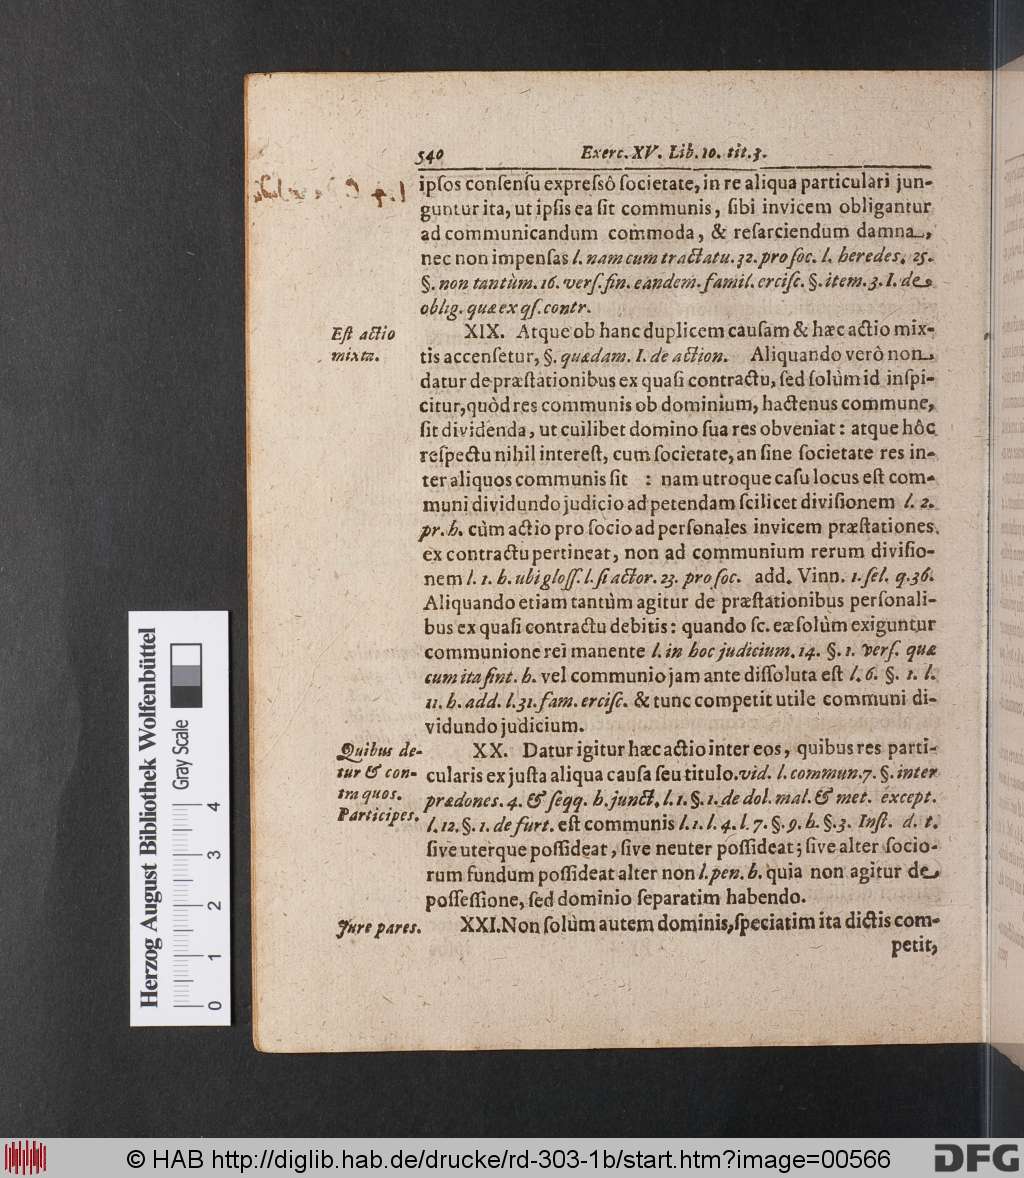 540 Exerc. XV. Lib. 10. tit. 3.
ipſos conſenſu expreſsô ſocietate, in re aliqua particulari jun-
guntur ita, ut ipſis ea ſit communis, ſibi invicem obligantur
ad communicandum commoda, & reſarciendum damna,
nec non impenſas l. nam cum tractatu. 32. pro ſoc. l. heredes. 25.
§. non tantùm. 16. verſ. fin. eandem. famil. erciſc. §. item. 3. I. de
oblig. quæ ex qſ. contr.
Eſt actio
mixta.
XIX. Atque ob hanc duplicem cauſam & hæc actio mix-
tis accenſetur, §. quædam. I. de action. Aliquando verò non
datur de præſtationibus ex quaſi contractu, ſed ſolùm id inſpi-
citur, quòd res communis ob dominium, hactenus commune,
ſit dividenda, ut cuilibet domino ſua res obveniat: atque hôc
reſpectu nihil intereſt, cum ſocietate, an ſine ſocietate res in-
ter aliquos communis ſit : nam utroque caſu locus eſt com-
muni dividundo judicio ad petendam ſcilicet diviſionem l. 2.
pr. h. cùm actio pro ſocio ad perſonales invicem præſtationes
ex contractu pertineat, non ad communium rerum diviſio-
nem l. 1. h. ubi gloſſ. l. ſi actor. 23. pro ſoc. add. Vinn. 1. ſel. q. 36.
Aliquando etiam tantùm agitur de præſtationibus perſonali-
bus ex quaſi contractu debitis: quando ſc. eæ ſolùm exiguntur
communione rei manente l. in hoc judicium. 14. §. 1. verſ. quæ
cum ita ſint. h. vel communio jam ante diſſoluta eſt l. 6. §. 1. l.
11. h. add. l. 31. fam. erciſc. & tunc competit utile communi di-
vidundo judicium.
Quibus de-
tur & con-
tra quos.
Participes.
XX. Datur igitur hæc actio inter eos, quibus res parti-
cularis ex juſta aliqua cauſa ſeu titulo. vid. l. commun. 7. §. inter
prædones. 4. & ſeqq. h. junct. l. 1. §. 1. de dol. mal. & met. except.
l. 12. §. 1. de furt. eſt communis l. 1. l. 4. l. 7. §. 9. h. §. 3. Inſt. d. t.
ſive uterque poſſideat, ſive neuter poſſideat; ſive alter ſocio-
rum fundum poſſideat alter non l. pen. h. quia non agitur de
poſſeſſione, ſed dominio ſeparatim habendo.
Jure pares.
XXI. Non ſolùm autem dominis, ſpeciatim ita dictis com-
petit,
Herzog August Bibliothek Wolfenbüttel
Gray Scale
0 1 2 3 4
© HAB http://diglib.hab.de/drucke/rd-303-1b/start.htm?image=00566
DFG